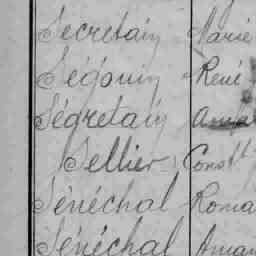 Secretain Marie
Ségouin René
Ségretain
Sellier Const
Sénéchal Roma
Sénéchal Aman